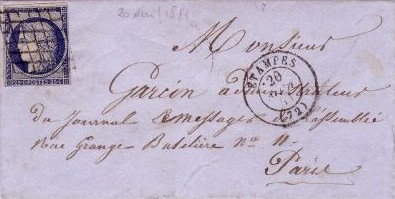 20 Avril 1851
Monsieur
ETAMPES
20
(72)
POSTES
Garcin administrateur
du Journal le messager de l'assemblée
rue Grange Batelière No 11
Paris